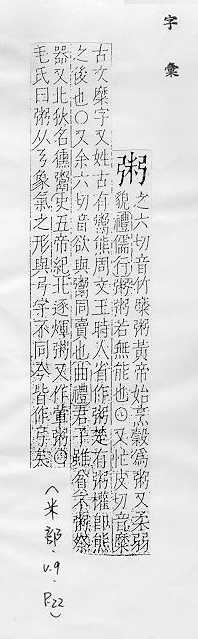 字彙
粥 之六切音竹糜粥黃帝始烹穀爲粥又柔弱
貌禮儒行粥粥若無能也○又忙皮切音糜
古文糜字又姓古有鬻熊周文王時人省作粥楚有粥權卽熊
之後也○又余六切音欲與鬻同賣也曲禮君子雖貧不粥祭
器又北狄名獯鬻史五帝紀北逐粥又作葷粥○
毛氏曰粥从弓象氣之形與弓字不同今皆作弓矣
(米部.v.9.P.22)